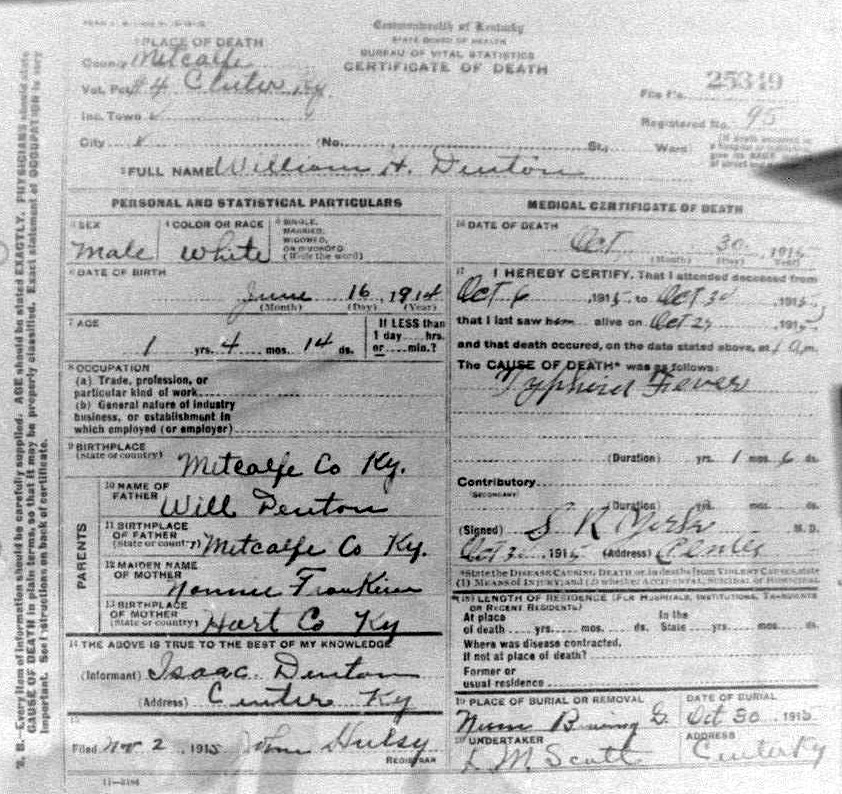 Commonwealth of Kentucky
STATE BOARD OF HEALTH
BUREAU OF VITAL STATISTICS
CERTIFICATE OF DEATH
1 PLACE OF DEATH
County Metcalfe
Vot. Pct #4 Center Ky
Inc. Town
City (No. St., Ward)
File No. 25349
Registered No. 95
2 FULL NAME William H. Denton
PERSONAL AND STATISTICAL PARTICULARS
3 SEX Male
4 COLOR OR RACE White
5 SINGLE, MARRIED, WIDOWED, OR DIVORCED (Write the word)
6 DATE OF BIRTH
June 16, 1914
(Month) (Day) (Year)
7 AGE
1 yrs. 4 mos. 14 ds.
If LESS than 1 day hrs. or min.?
8 OCCUPATION
(a) Trade, profession, or
particular kind of work
(b) General nature of industry
business, or establishment in
which employed (or employer)
9 BIRTHPLACE
(State or country) Metcalfe Co Ky.
PARENTS
10 NAME OF
FATHER Will Denton
11 BIRTHPLACE
OF FATHER
(State or country) Metcalfe Co Ky.
12 MAIDEN NAME
OF MOTHER
13 BIRTHPLACE
OF MOTHER
(State or country) Hart Co Ky
14 THE ABOVE IS TRUE TO THE BEST OF MY KNOWLEDGE
(Informant) Isaac Denton
(Address) Center Ky
15
Filed Nov 2, 1915 John Hulsy
REGISTRAR
11-3184
MEDICAL CERTIFICATE OF DEATH
16 DATE OF DEATH
Oct 30 1915
(Month) (Day) (Year)
17 I HEREBY CERTIFY, That I attended deceased from
Oct 6, 1915, to Oct 30, 1915,
that I last saw him alive on Oct 29, 1915,
and that death occured, on the date stated above, at 1 a.m.
The CAUSE OF DEATH* was as follows:
Typhoid Fever
(Duration) yrs. 1 mos. 6 ds.
Contributory
SECONDARY
(Duration) yrs. mos. ds.
(Signed) S R M. D.
Oct 30, 1915 (Address) Center
*State the DISEASE CAUSING DEATH or in deaths from VIOLENT CAUSES, state
(1) MEANS OF INJURY; and (2) whether ACCIDENTAL, SUICIDAL or HOMICIDAL
18 LENGTH OF RESIDENCE (FOR HOSPITALS, INSTITUTIONS, TRANSIENTS
OR RECENT RESIDENTS)
At place In the
of death yrs. mos. ds. State yrs. mos. ds.
Where was disease contracted,
If not at place of death?
Former or
usual residence
19 PLACE OF BURIAL OR REMOVAL DATE OF BURIAL
Oct 30 1915
20 UNDERTAKER ADDRESS
L M Scott Center Ky
N. B.—Every item of information should be carefully supplied. AGE should be stated EXACTLY. PHYSICIANS should state
CAUSE OF DEATH in plain terms, so that it may be properly classified. Exact statement of OCCUPATION is very
important. See instructions on back of certificate.